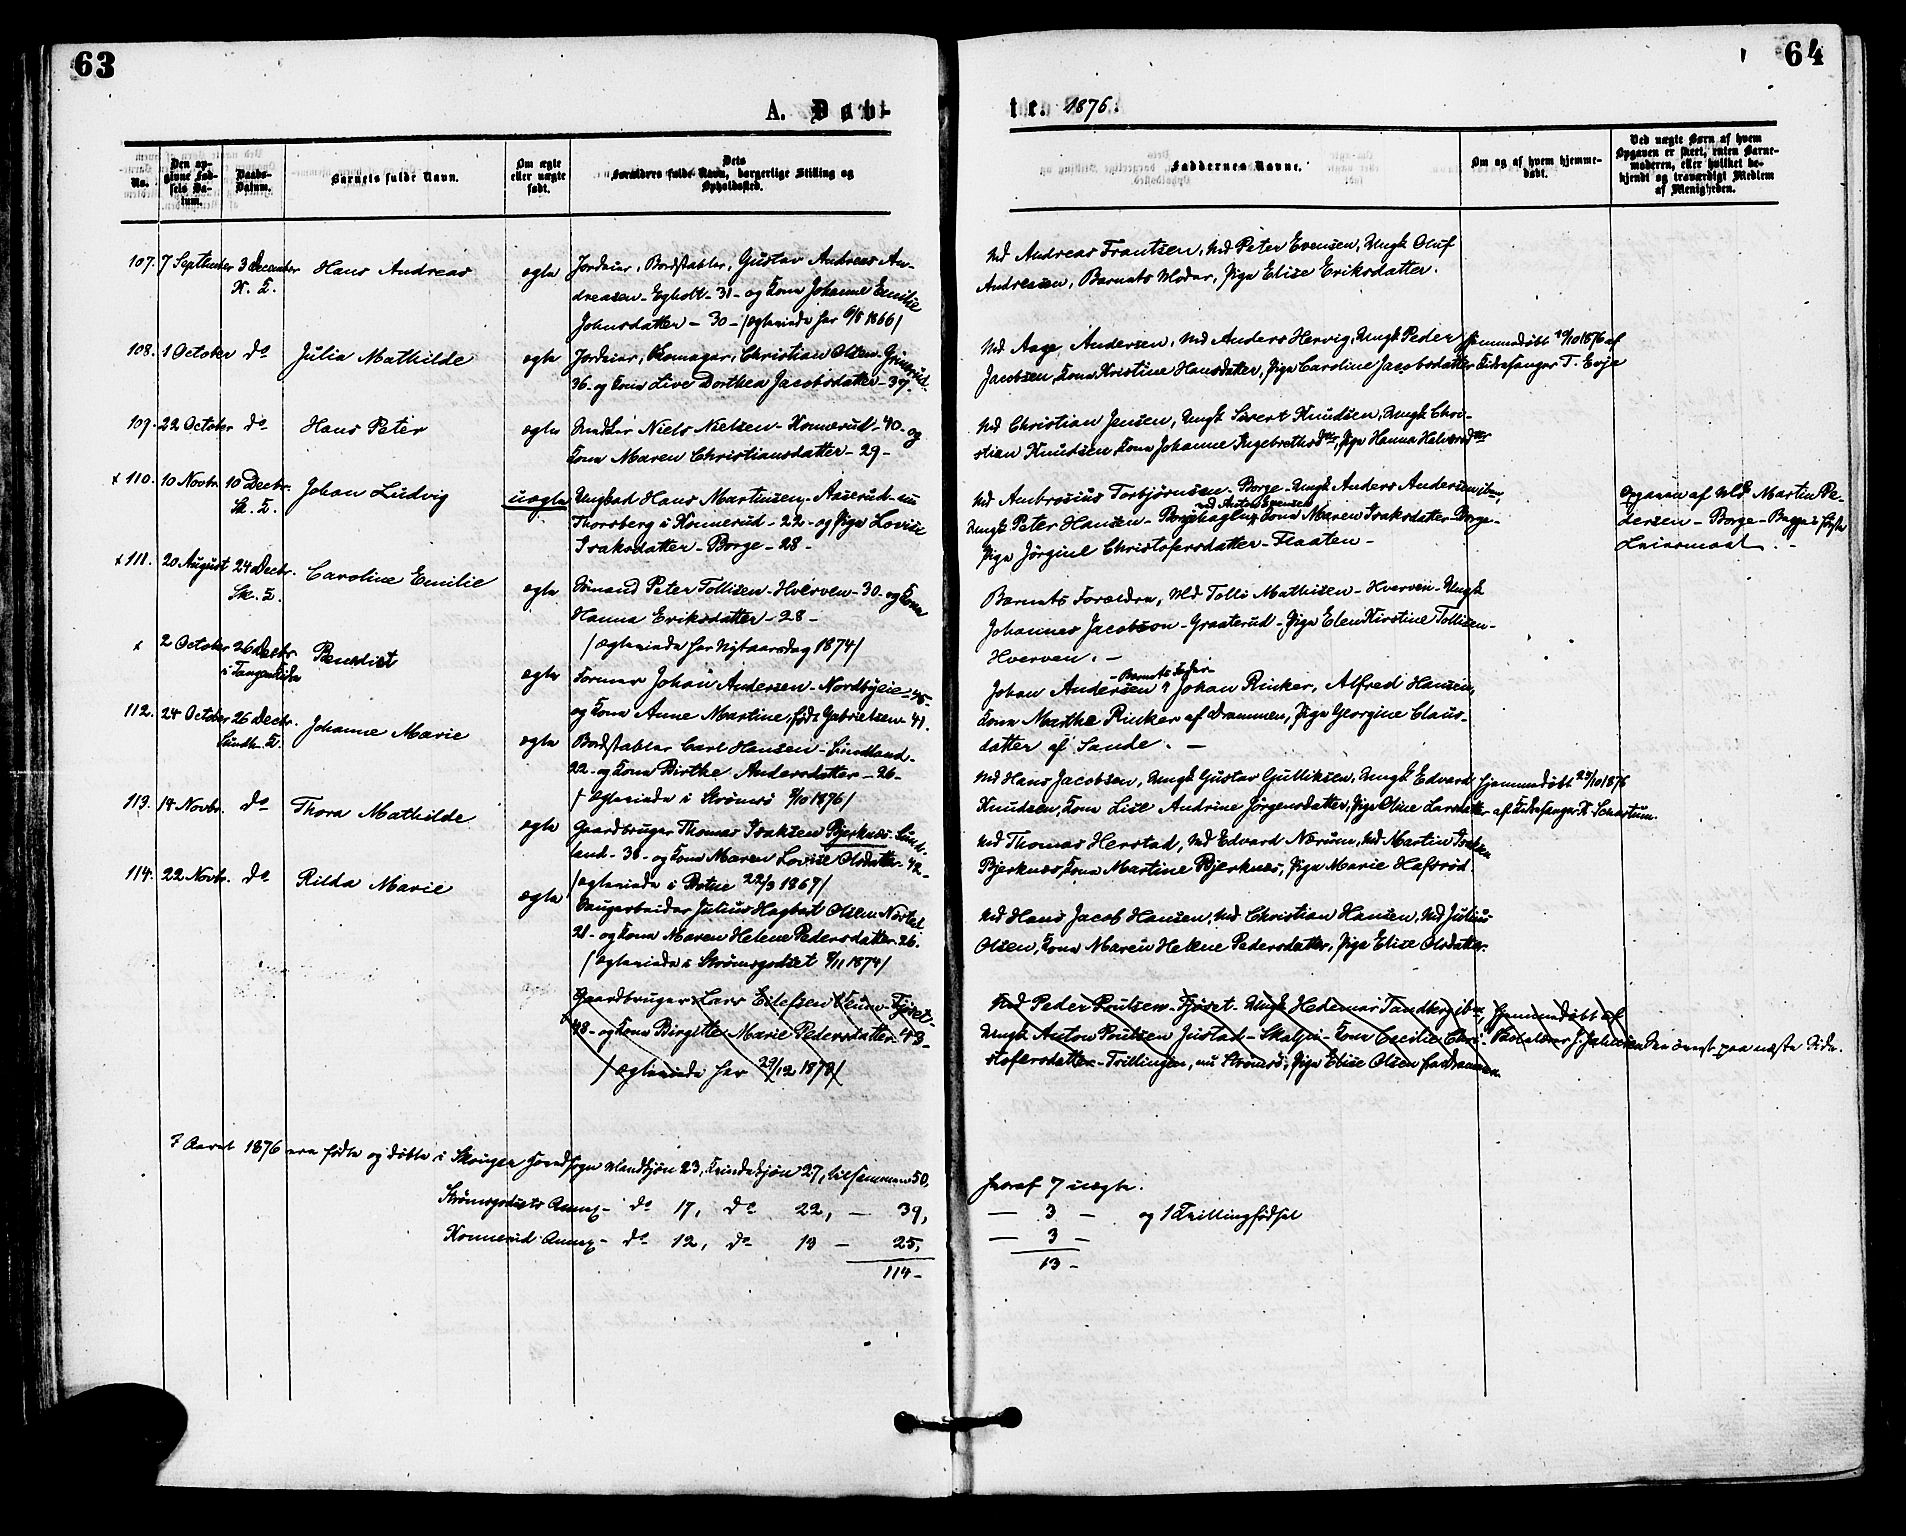 63
64
A. Døb-
te. 1876.
No.
Den opgivne Fødsels Datum.
Daabs-Datum.
Barnets fulde Navn.
Om ægte eller uægte født.
Dets Forældres fulde Navn, borgerlige Stilling og Opholdssted.
Faddernes Navne.
Om og af hvem hjemmedøbt.
Ved uægte Børn af hvem Opgaven er skeet, enten Barnemoderen, eller hvilket bekjendt og troværdigt Medlem af Menigheden.
107. 7 September 3 December Hans Andreas ægte Jordeier, Bordstabler, Gustav Andreas An-
K. K.
dreasen Egholt - 31 - og Kone Johanne Emilie
Johnsdatter - 30 - /ægteviede her 6/5 1866/
Md Andreas Frantsen, Md Peter Evensen, Ungk Oluf
Andresen, Barnets Moder, Pige Elise Eriksdatter.
108. 1 October do Julia Mathilde ægte Jordeier, Christian Olsen Grinerud
36 - og Kone Live Dorthea Jacobsdatter - 37 -
Md Aage Andersen, Md Anders Hervig, Ungk Peder
Jacobsen, Kone Kristine Hansdatter, Pige Caroline Jacobsdatter
hjemmedøbt 10/10 1876 af
Kirkesanger T. Evje
109. 22 October do Hans Peter ægte Niels Nielsen - Konnerud - 40 - og
Kone Maren Christiansdatter - 29 -
Md Christian Jensen, Ungk Sivert Knudsen, Ungk Chri-
stian Knudsen, Kone Johanne Ingebrethsdtr, Pige Hanna Halvorsdtr
x 110. 10 Novbr. 10 Decbr. Johan Ludvig uægte Ungkad Hans Martinsen - Aaserud - nu
Sk. K.
Thorsberg i Konnerud - 22 - og Pige Lovise
Isaksdatter - Borge - 28 -
Md Ambrosius Torbjørnsen - Borge - Ungk Anders Andersen ibm,
Md Anton Evensen
Ungk Peter Hansen - Kone Maren Isaksdatter - Borge -
Pige Jørgine Christofersdatter - Flaaten -
Opgaven af Md Martin Pe-
dersen - Borge - Begges første
Leiermaal. -
x 111. 20 August 24 Decbr. Caroline Emilie ægte Sømand Peter Tollisen - Hverven - 30 - og Kone
Sk. K.
Hanna Eriksdatter - 28 -
/ægteviede her Nytaarsdag 1874/
Barnets Forældre, Md Tolle Mathisen - Hverven - Ungk
Johannes Jacobson - Graaterud - Pige Elen Kirstine Tollisen -
Hverven. -
x 2 October 26 Decbr. Benedict ægte Former Johan Andersen - Nordbyeie - 45 -
i Tangen Kirke
og Kone Anne Martine, født Gabrielsen - 41.
- Barnets Fader -
Johan Andersen, Johan Rinker, Alfred Hansen,
Kone Marthe Rinker af Drammen, Pige Georgine Claus-
datter af Sande. -
112. 24 October 26 Decbr. Johanne Marie ægte Bordstabler Carl Hansen - Sundland -
Sundh. K.
22 - og Kone Birthe Andersdatter - 26 -
/ægteviede i Strømsø 8/10 1876/
Md Hans Jacobsen, Ungk Gustav Gulliksen, Ungk Edvard
Knudsen, Kone Lise Andrine Jørgensdatter, Pige Oline Larsdatter
hjemmedøbt 29/10 1876
af Kirkesanger K. Schartum.
113. 14 Novbr. do Thora Mathilde ægte Gaardbruger Thomas Isaksen Bjerknæs - Sund-
land - 36 - og Kone Maren Lovise Olsdatter - 42 -
/ægteviede i Botne 22/9 1867/
Md Thomas Herstad, Md Edvard Nærum, Md Martin Isaksen
Bjerknæs, Kone Martine Bjerknæs, Pige Marie Hafsrød.
114. 22 Novbr. do Rilda Marie ægte Saugarbeider Julius Hagbart Olsen Nøsted
21 - og Kone Maren Helene Pedersdatter - 26.
/ægteviede i Strømsgodset 8/11 1874/
Md Hans Jacob Hansen, Md Christian Hansen, Md Julius
Olsen, Kone Maren Helene Pedersdatter, Pige Elise Olsdatter.
Gaardbruger Lars Eilefsen - Fjøset -
48 - og Kone Birgitte Marie Pedersdatter - 43 -
/ægteviede her 29/12 1873/
Md Peder Poulsen - Fjøset - Ungk Hedemar Tandberg ibm,
Ungk Anton Poulsen Justad - Skalpi - Kone Cecilie Chri-
stofersdatter - Trillingen, nu Strømsø, Pige Elise Olsen fra Drammen.
hjemmedøbt af
J. Johnsen
øverst paa næste Side.
I Aaret 1876 ere fødte og døbte i Skouger Hovedsogn Mandkjøn 23, Kvindekjøn 27, tilsammen 50,
Strømsgodsets Annex - do 17, do 22, - 39,
Konnerud Annex - do 12, do 13 - 25,
114 -
heraf 7 uægte.
- 3 - og 1 Tvillingfødsel
- 3 -
13 -